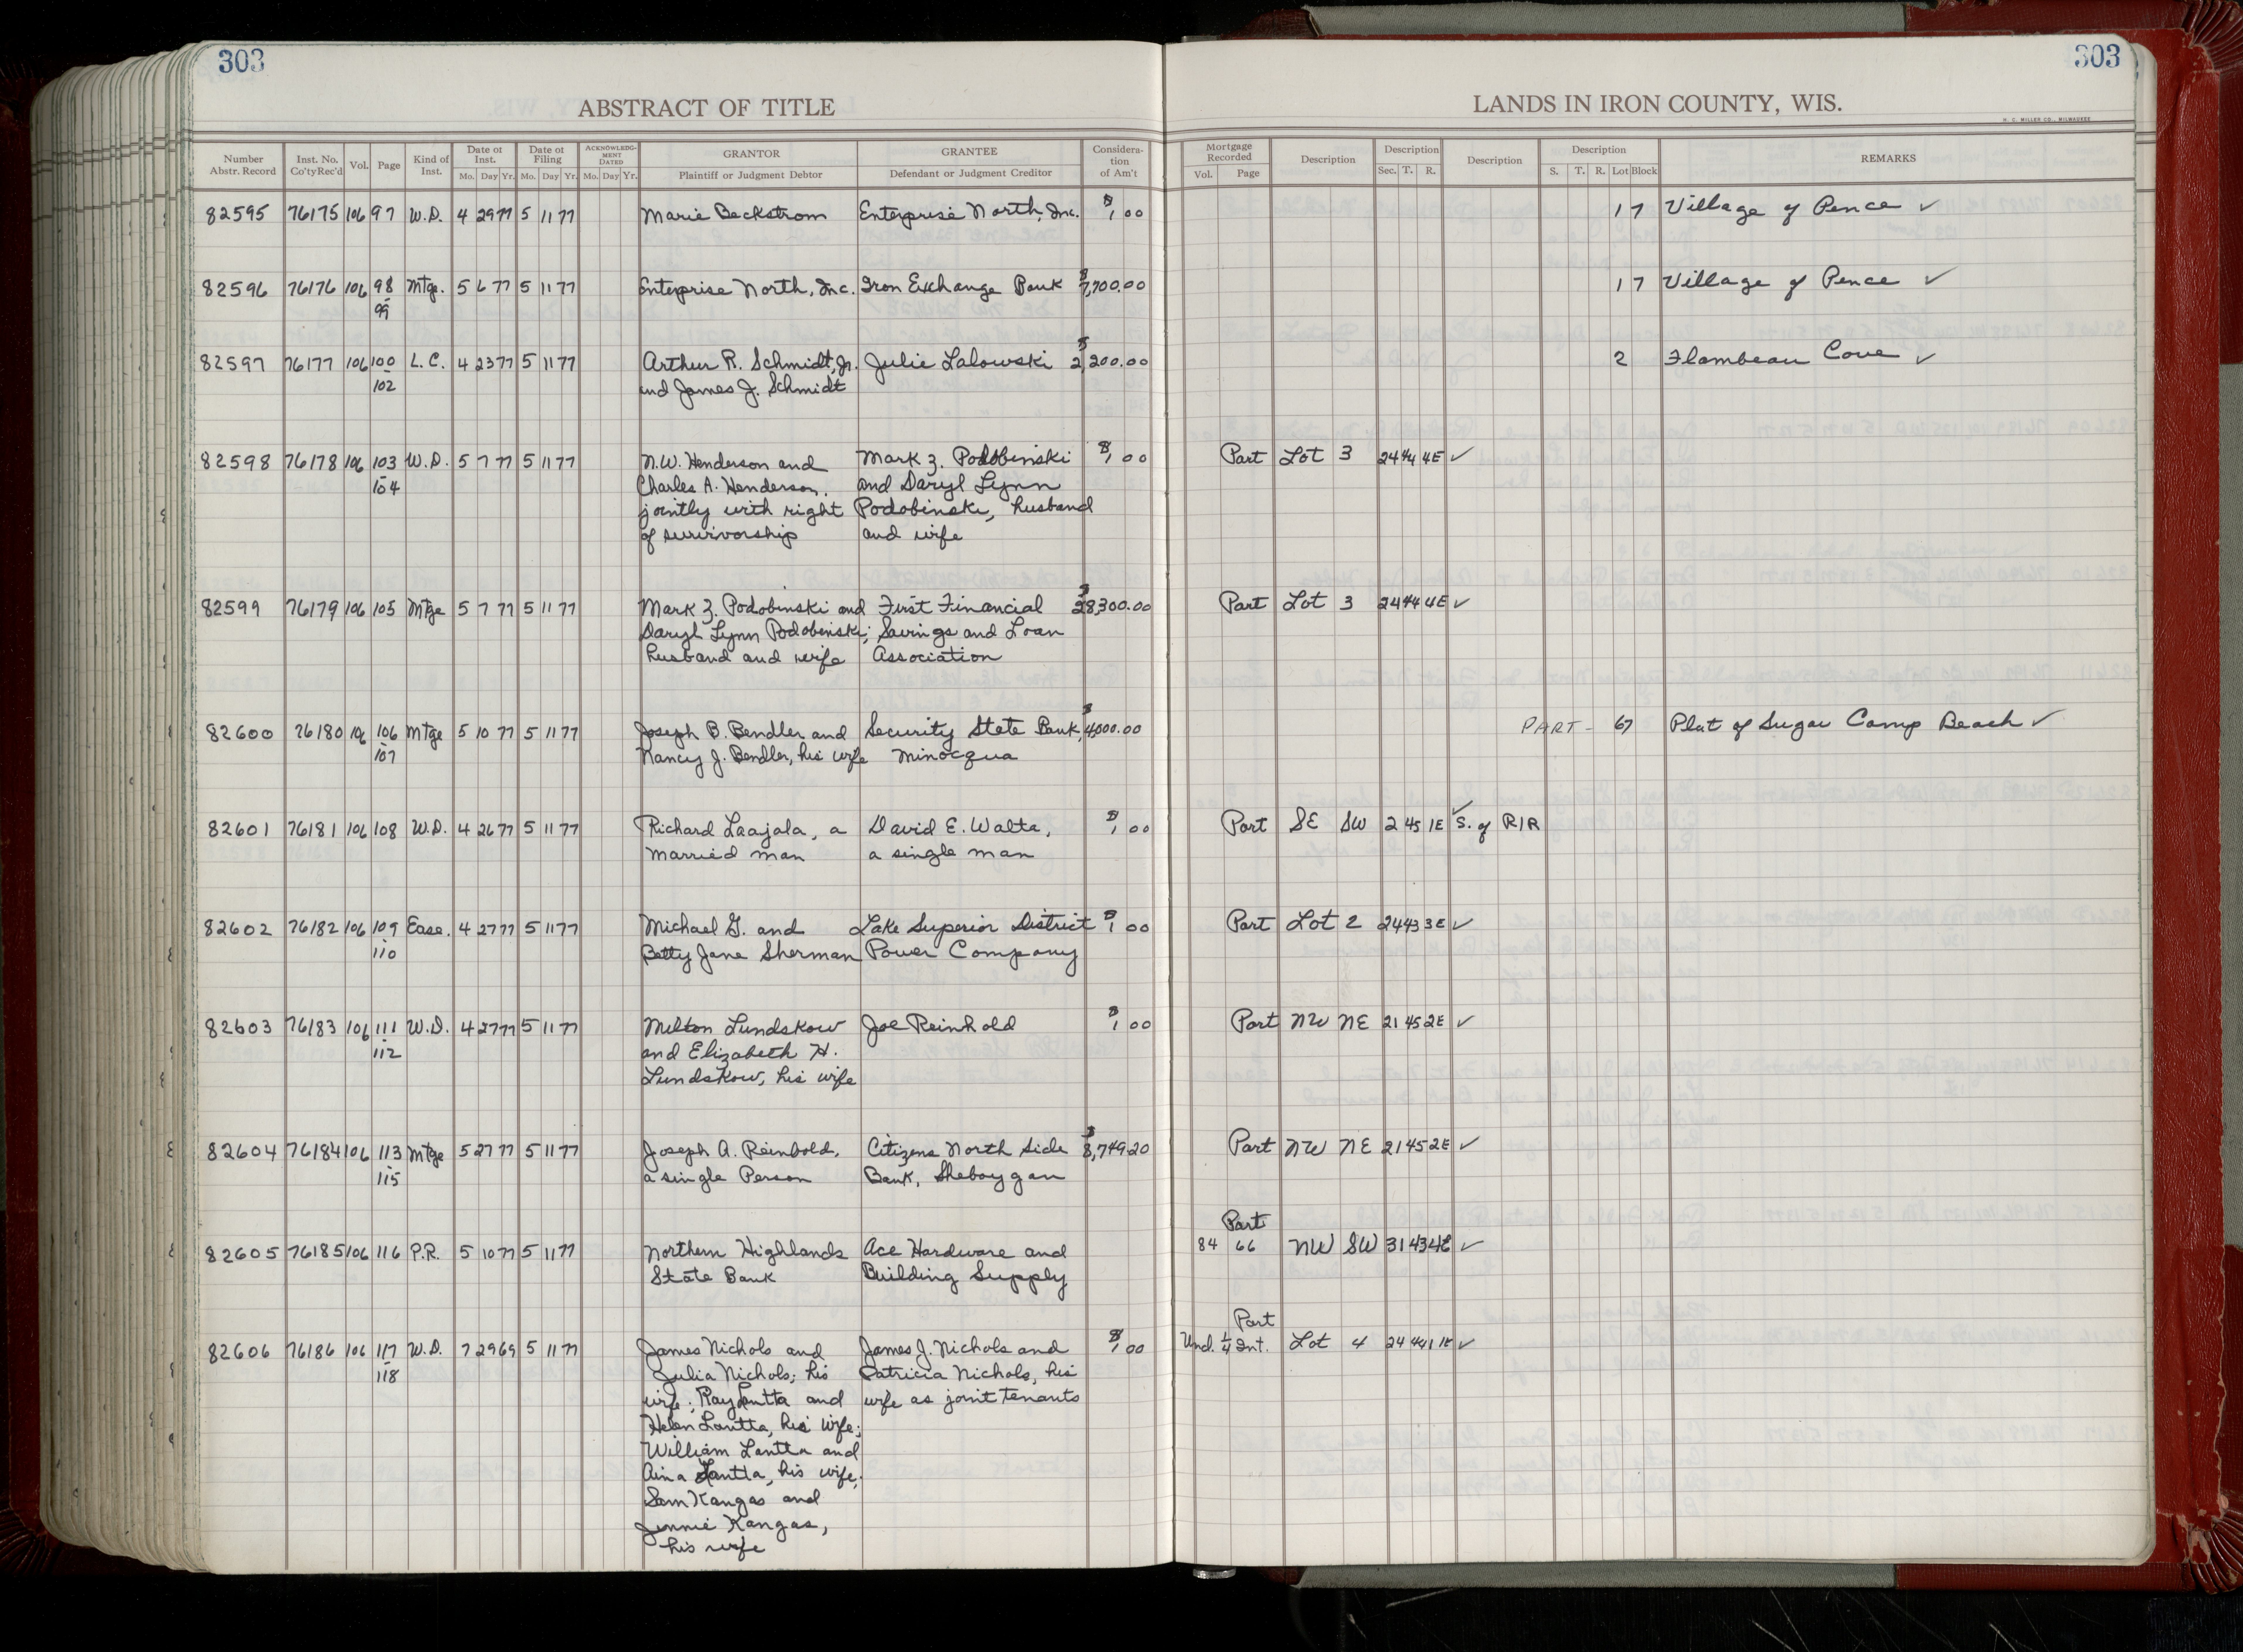 303
303
ABSTRACT OF TITLE
LANDS IN IRON COUNTY, WIS.
H. C. MILLER CO., MILWAUKEE
Number Abstr. Record | Inst. No. Co'ty Rec'd | Vol. | Page | Kind of Inst. | Date of Inst. Mo. Day Yr. | Date of Filing Mo. Day Yr. | ACKNOWLEDGMENT DATED Mo. Day Yr. | GRANTOR Plaintiff or Judgment Debtor | GRANTEE Defendant or Judgment Creditor | Consideration of Am't | Mortgage Recorded Vol. Page | Description | Description Sec. T. R. | Description | Description S. T. R. Lot Block | REMARKS
82595 76175 106 97 W.D. 4 29 77 5 11 77 Marie Beckstrom Enterprise North, Inc. $1.00 17 Village of Pence ✓
82596 76176 106 98 Mtge. 5 6 77 5 11 77 Enterprise North, Inc. Iron Exchange Bank $7,700.00 17 Village of Pence ✓
- 99
82597 76177 106 100 L.C. 4 23 77 5 11 77 Arthur R. Schmidt, Jr. Julie Lalowski $2,200.00 2 Flambeau Cove ✓
- 102 and James J. Schmidt
82598 76178 106 103 W.D. 5 7 77 5 11 77 N.W. Henderson and Mark Z. Podobinski $1.00 Part Lot 3 24 44 4E ✓
- 104 Charles A. Henderson. and Daryl Lynn
jointly with right Podobinski, husband
of survivorship and wife
82599 76179 106 105 Mtge 5 7 77 5 11 77 Mark Z. Podobinski and First Financial $28,300.00 Part Lot 3 24 44 4E ✓
Daryl Lynn Podobinski; Savings and Loan
husband and wife Association
82600 76180 106 106 Mtge 5 10 77 5 11 77 Joseph B. Bendler and Security State Bank, $4,000.00 PART - 67 Plat of Sugar Camp Beach ✓
- 107 Nancy J. Bendler, his wife Minocqua
82601 76181 106 108 W.D. 4 26 77 5 11 77 Richard Laajala, a David E. Walta, $1.00 Part SE SW 2 45 1E ✓ S. of R/R
married man a single man
82602 76182 106 109 Ease. 4 27 77 5 11 77 Michael G. and Lake Superior District $1.00 Part Lot 2 24 43 3E ✓
- 110 Betty Jane Sherman Power Company
82603 76183 106 111 W.D. 4 27 77 5 11 77 Milton Lundskow Joe Reinhold $1.00 Part NW NE 21 45 2E ✓
- 112 and Elizabeth H.
Lundskow, his wife
82604 76184 106 113 Mtge 5 27 77 5 11 77 Joseph A. Reinbold, Citizens North Side $8,749.20 Part NW NE 21 45 2E ✓
- 115 a single Person Bank, Sheboygan
Part
82605 76185 106 116 P.R. 5 10 77 5 11 77 Northern Highlands Ace Hardware and 84 66 NW SW 31 43 4E ✓
State Bank Building Supply
Part
82606 76186 106 117 W.D. 7 29 69 5 11 77 James Nichols and James J. Nichols and $1.00 Und. 1/4 Int. Lot 4 24 44 1E ✓
- 118 Julia Nichols; his Patricia Nichols, his
wife; Ray Lantta and wife as joint tenants
Helen Lantta, his wife;
William Lantta and
Aina Lantta, his wife;
Sam Kangas and
Jennie Kangas,
his wife